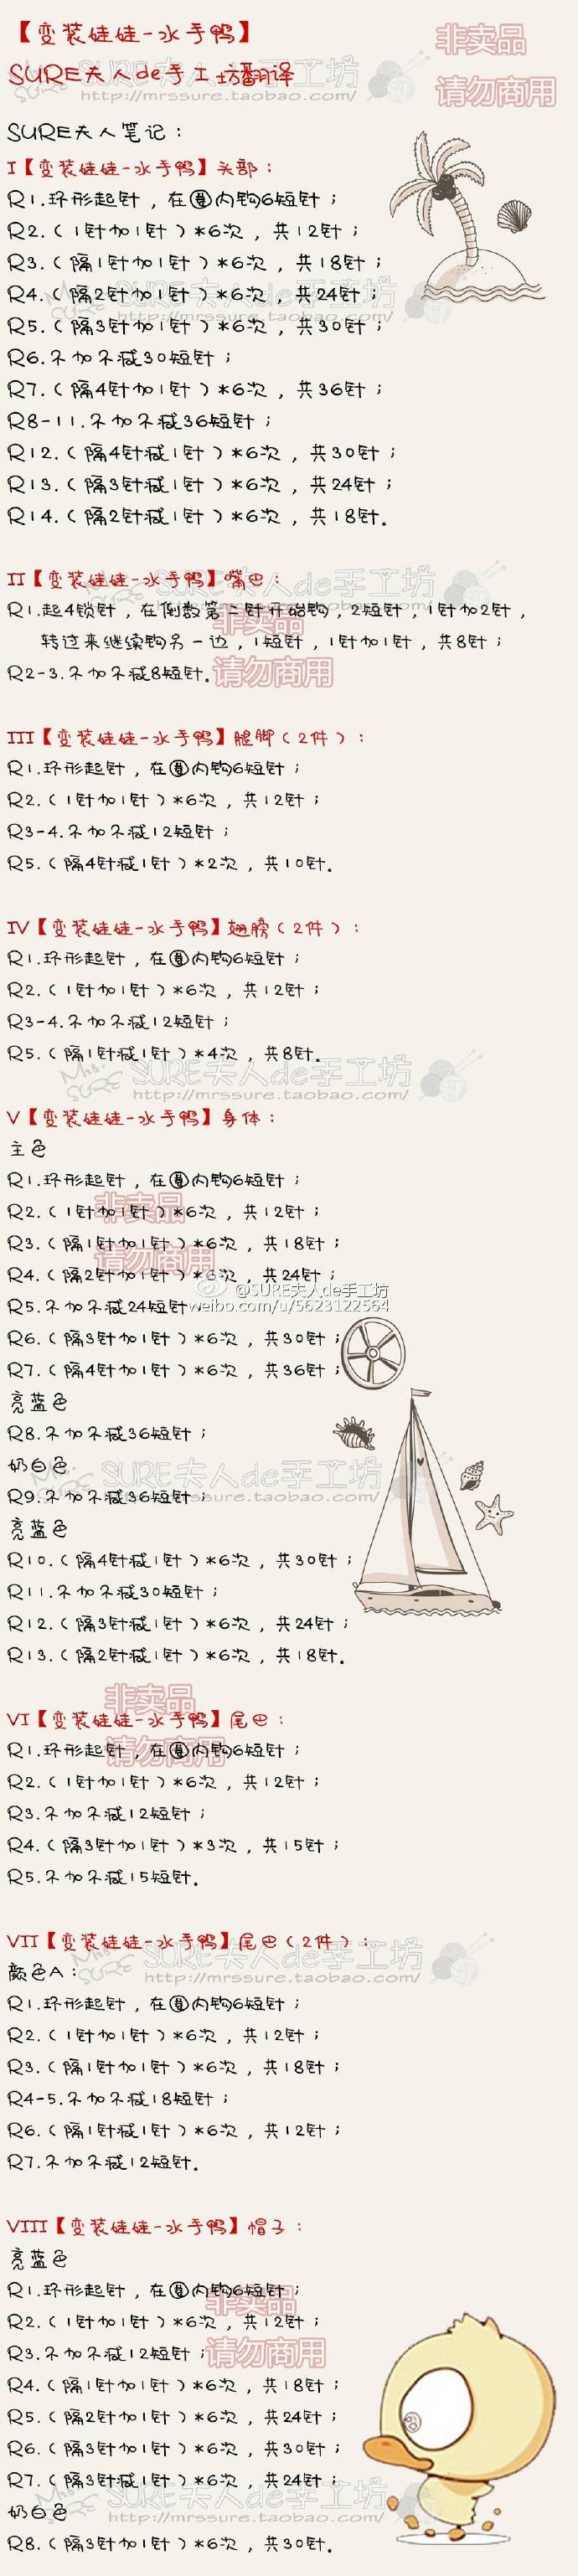 【变装娃娃-水手鸭】
非卖品
请勿商用
SURE夫人de手工坊翻译
SURE夫人de手工坊
http://mrssure.taobao.com/
SURE夫人笔记：
I【变装娃娃-水手鸭】头部：
R1.环形起针，在圈内钩6短针；
R2.（1针加1针）*6次，共12针；
R3.（隔1针加1针）*6次，共18针；
R4.（隔2针加1针）*6次，共24针；
Mrs. SURE SURE夫人de手工坊
http://mrssure.taobao.com/
R5.（隔3针加1针）*6次，共30针；
R6.不加不减30短针；
R7.（隔4针加1针）*6次，共36针；
R8-11.不加不减36短针；
R12.（隔4针减1针）*6次，共30针；
R13.（隔3针减1针）*6次，共24针；
R14.（隔2针减1针）*6次，共18针。
II【变装娃娃-水手鸭】嘴巴：
Mrs. SURE SURE夫人de手工坊
http://mrssure.taobao.com/
R1.起4锁针，在倒数第二针开始钩，2短针，1针加2针，
非卖品
转过来继续钩另一边，1短针，1针加1针，共8针；
R2-3.不加不减8短针。
请勿商用
III【变装娃娃-水手鸭】腿脚（2件）：
R1.环形起针，在圈内钩6短针；
R2.（1针加1针）*6次，共12针；
R3-4.不加不减12短针；
R5.（隔4针减1针）*2次，共10针。
IV【变装娃娃-水手鸭】翅膀（2件）：
R1.环形起针，在圈内钩6短针；
R2.（1针加1针）*6次，共12针；
R3-4.不加不减12短针；
R5.（隔1针减1针）*4次，共8针。
Mrs. SURE SURE夫人de手工坊
http://mrssure.taobao.com/
V【变装娃娃-水手鸭】身体：
主色
R1.环形起针，在圈内钩6短针；
非卖品
R2.（1针加1针）*6次，共12针；
R3.（隔1针加1针）*6次，共18针；
请勿商用
R4.（隔2针加1针）*6次，共24针；
@SURE夫人de手工坊
R5.不加不减24短针
weibo.com/u/5623122564
R6.（隔3针加1针）*6次，共30针；
R7.（隔4针加1针）*6次，共36针；
亮蓝色
R8.不加不减36短针；
奶白色
Mrs. SURE SURE夫人de手工坊
http://mrssure.taobao.com/
R9.不加不减36短针；
亮蓝色
R10.（隔4针减1针）*6次，共30针；
R11.不加不减30短针；
R12.（隔3针减1针）*6次，共24针；
R13.（隔2针减1针）*6次，共18针。
非卖品
VI【变装娃娃-水手鸭】尾巴：
请勿商用
R1.环形起针，在圈内钩6短针；
R2.（1针加1针）*6次，共12针；
R3.不加不减12短针；
R4.（隔3针加1针）*3次，共15针；
R5.不加不减15短针。
VII【变装娃娃-水手鸭】尾巴（2件）：
Mrs. SURE SURE夫人de手工坊
http://mrssure.taobao.com/
颜色A：
R1.环形起针，在圈内钩6短针；
R2.（1针加1针）*6次，共12针；
R3.（隔1针加1针）*6次，共18针；
R4-5.不加不减18短针；
R6.（隔1针减1针）*6次，共12针；
R7.不加不减12短针。
VIII【变装娃娃-水手鸭】帽子：
亮蓝色
R1.环形起针，在圈内钩6短针；
非卖品
R2.（1针加1针）*6次，共12针；
R3.不加不减12短针；
请勿商用
R4.（隔1针加1针）*6次，共18针；
R5.（隔2针加1针）*6次，共24针；
R6.（隔3针加1针）*6次，共30针；
R7.（隔3针减1针）*6次，共24针；
奶白色
Mrs. SURE SURE夫人de手工坊
http://mrssure.taobao.com/
R8.（隔3针加1针）*6次，共30针。